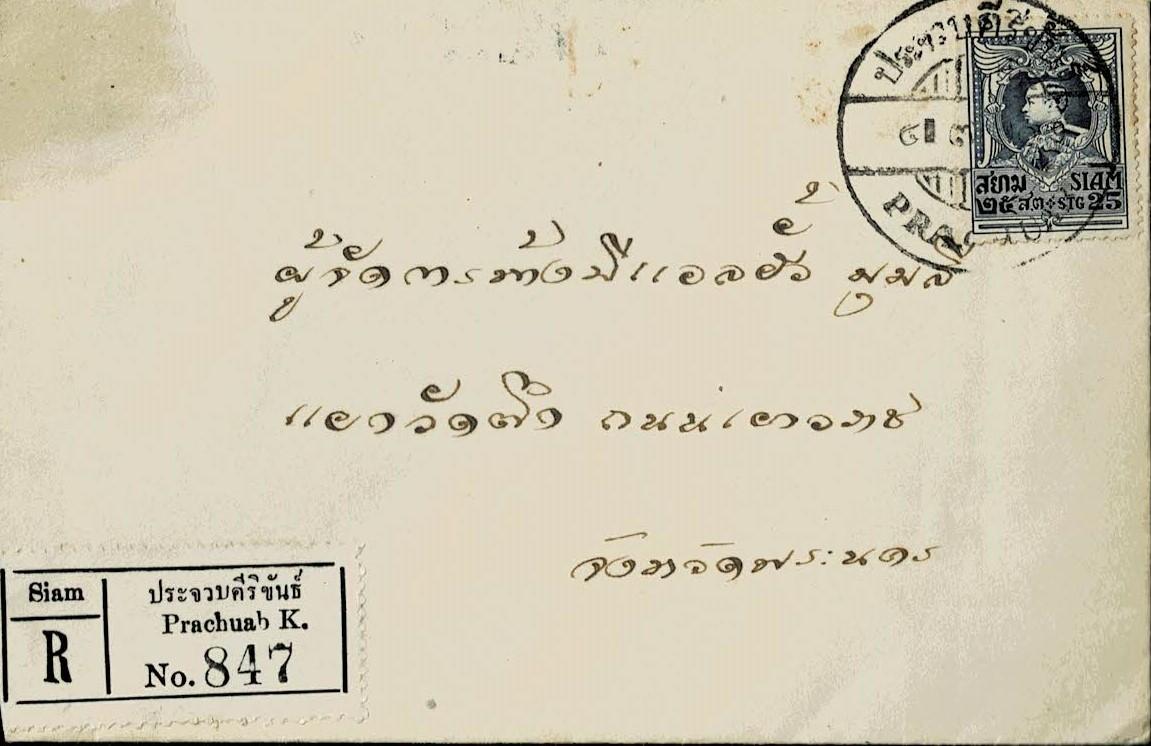 ประจวบคีรีขันธ์
PRACHUAB
สยาม SIAM
๒๕ สต STG 25
ผู้จัดการห้างบีแอลฮั้ว
แยกวัดตึก ถนนเยาวราช
จังหวัดพระนคร
Siam
R
ประจวบคีริขันธ์
Prachuab K.
No. 847